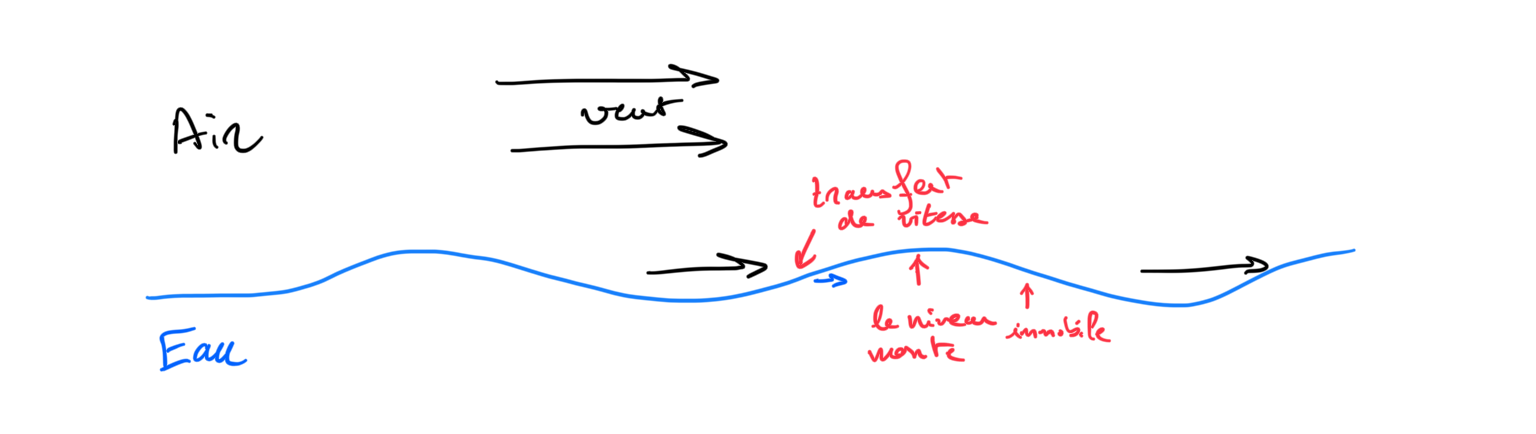 Air
vent
transfert
de vitesse
le niveau
monte
immobile
Eau